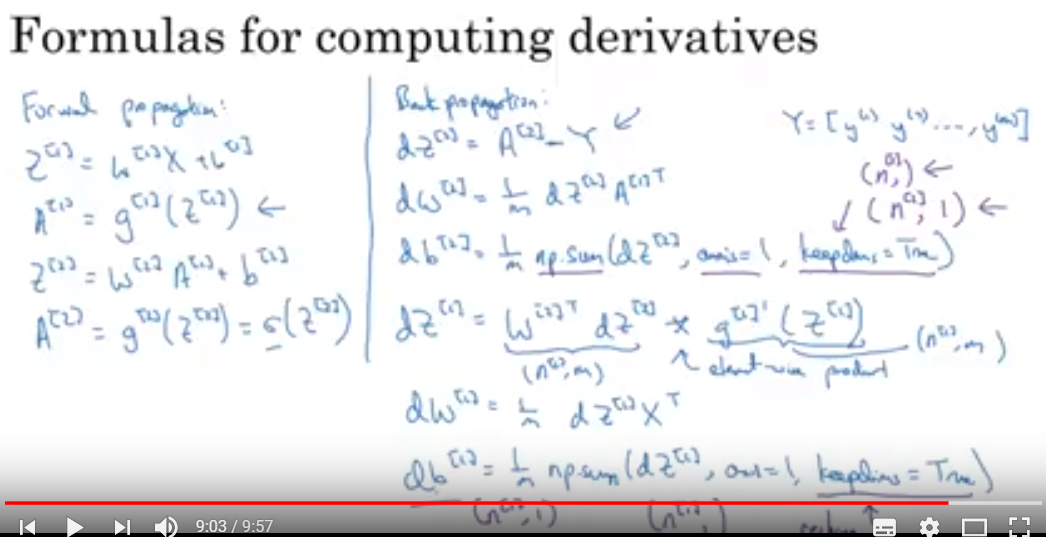 Formulas for computing derivatives
Forward propagation:
Z^[1] = W^[1] X + b^[1]
A^[1] = g^[1](Z^[1]) ←
Z^[2] = W^[2] A^[1] + b^[2]
A^[2] = g^[2](Z^[2]) = σ(Z^[2])
Back propagation:
dZ^[2] = A^[2] - Y ↙
dW^[2] = 1/m dZ^[2] A^[1]T
db^[2] = 1/m np.sum(dZ^[2], axis=1, keepdims=True)
dZ^[1] = W^[2]T dZ^[2] * g^[1]'(Z^[1])
(n^[1], m)
element-wise product
(n^[1], m)
dW^[1] = 1/m dZ^[1] X^T
db^[1] = 1/m np.sum(dZ^[1], axis=1, keepdims=True)
(n^[1], 1)
(n^[1],)
Y = [y^(1) y^(2) ..., y^(m)]
(n^[2],) ←
↙ (n^[2], 1) ←
9:03 / 9:57